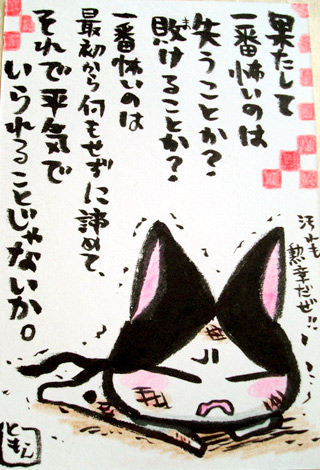 果たして
一番怖いのは
失うことか?
敗けることか?
一番怖いのは
最初から何もせずに諦めて、
それで平気で
いられることじゃないか。
汚れも
勲章だぜ!!